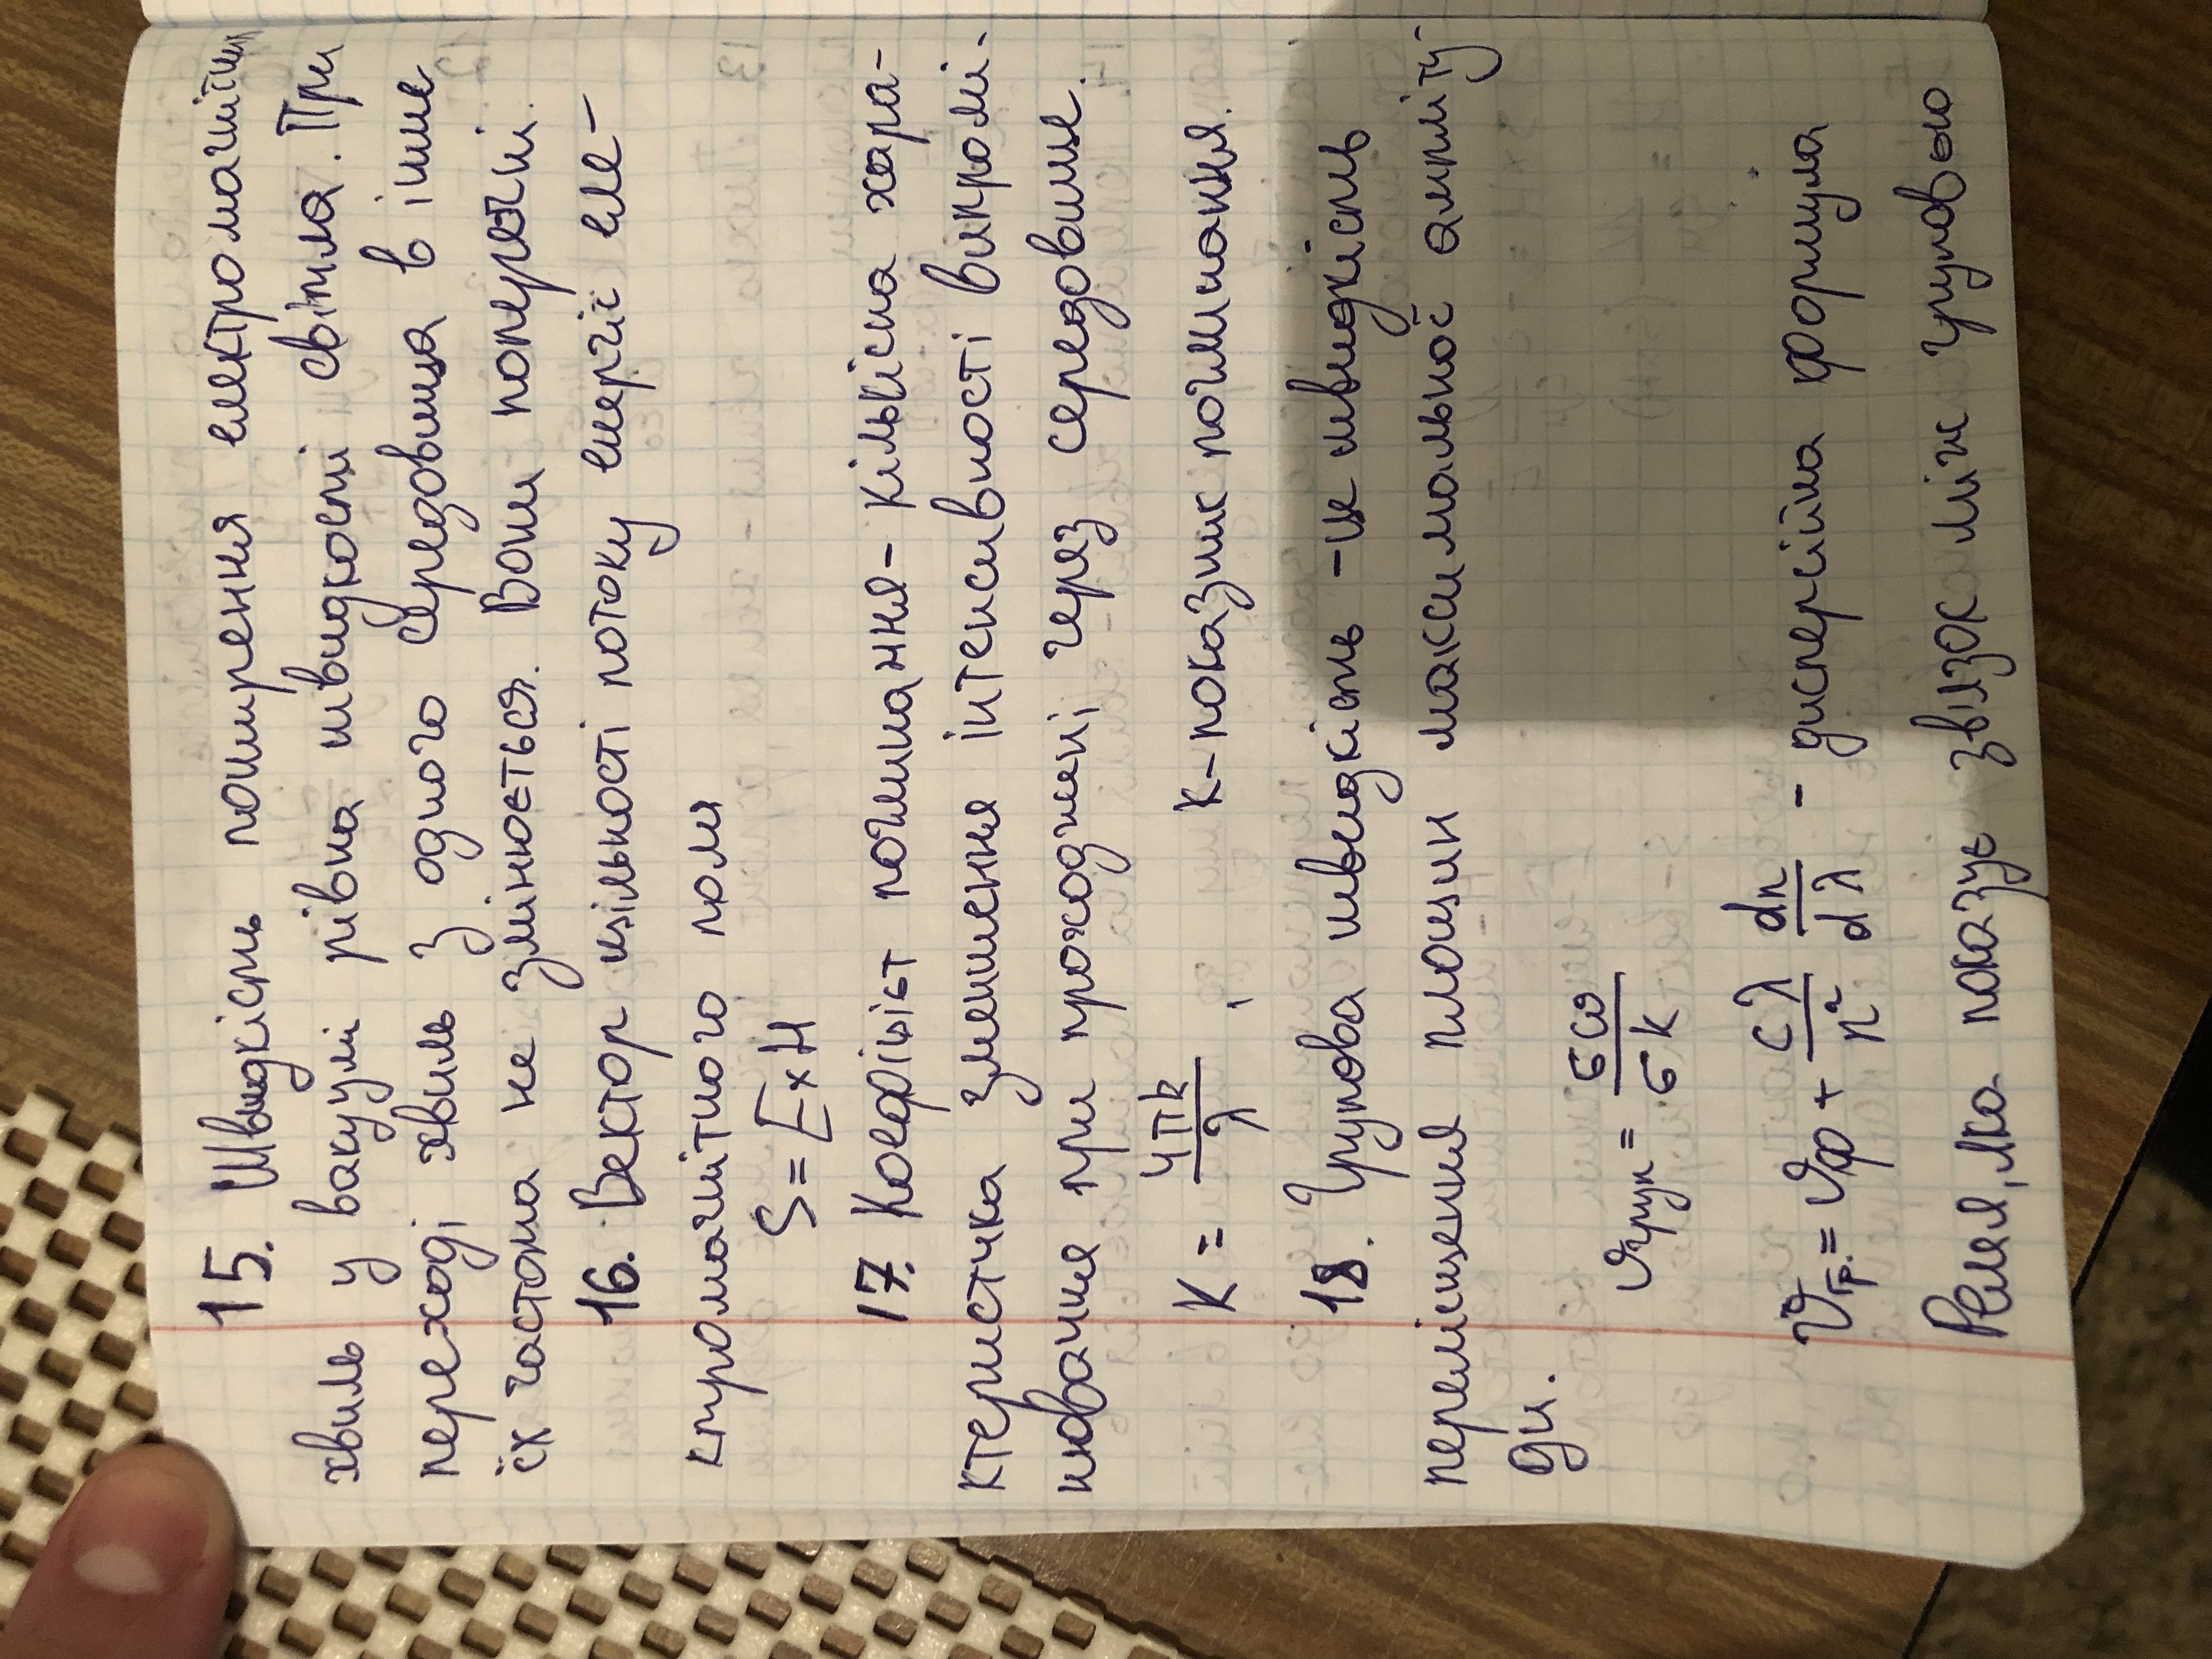 15. Швидкість поширення електромагнітних
хвиль у вакуумі рівна швидкості світла. При
переході хвиль з одного середовища в інше
їх частота не змінюється. Вони поперечні.
16. Вектор щільності потоку енергії еле-
ктромагнітного поля
S = E × H
17. Коефіцієт поглинання - кількісна хара-
ктеристика зменшення інтенсивності випромі-
нювання при проходжені через середовище.
K = 4πk / λ , к - показник поглинання.
18. Групова швидкість - це швидкість
переміщення площин максимальної ампліту-
ди.
υгруп = σω / σk
υгр. = υф + cλ / n² dn / dλ - дисперсійна формула
Релея, яка показує зв'язок між груповою